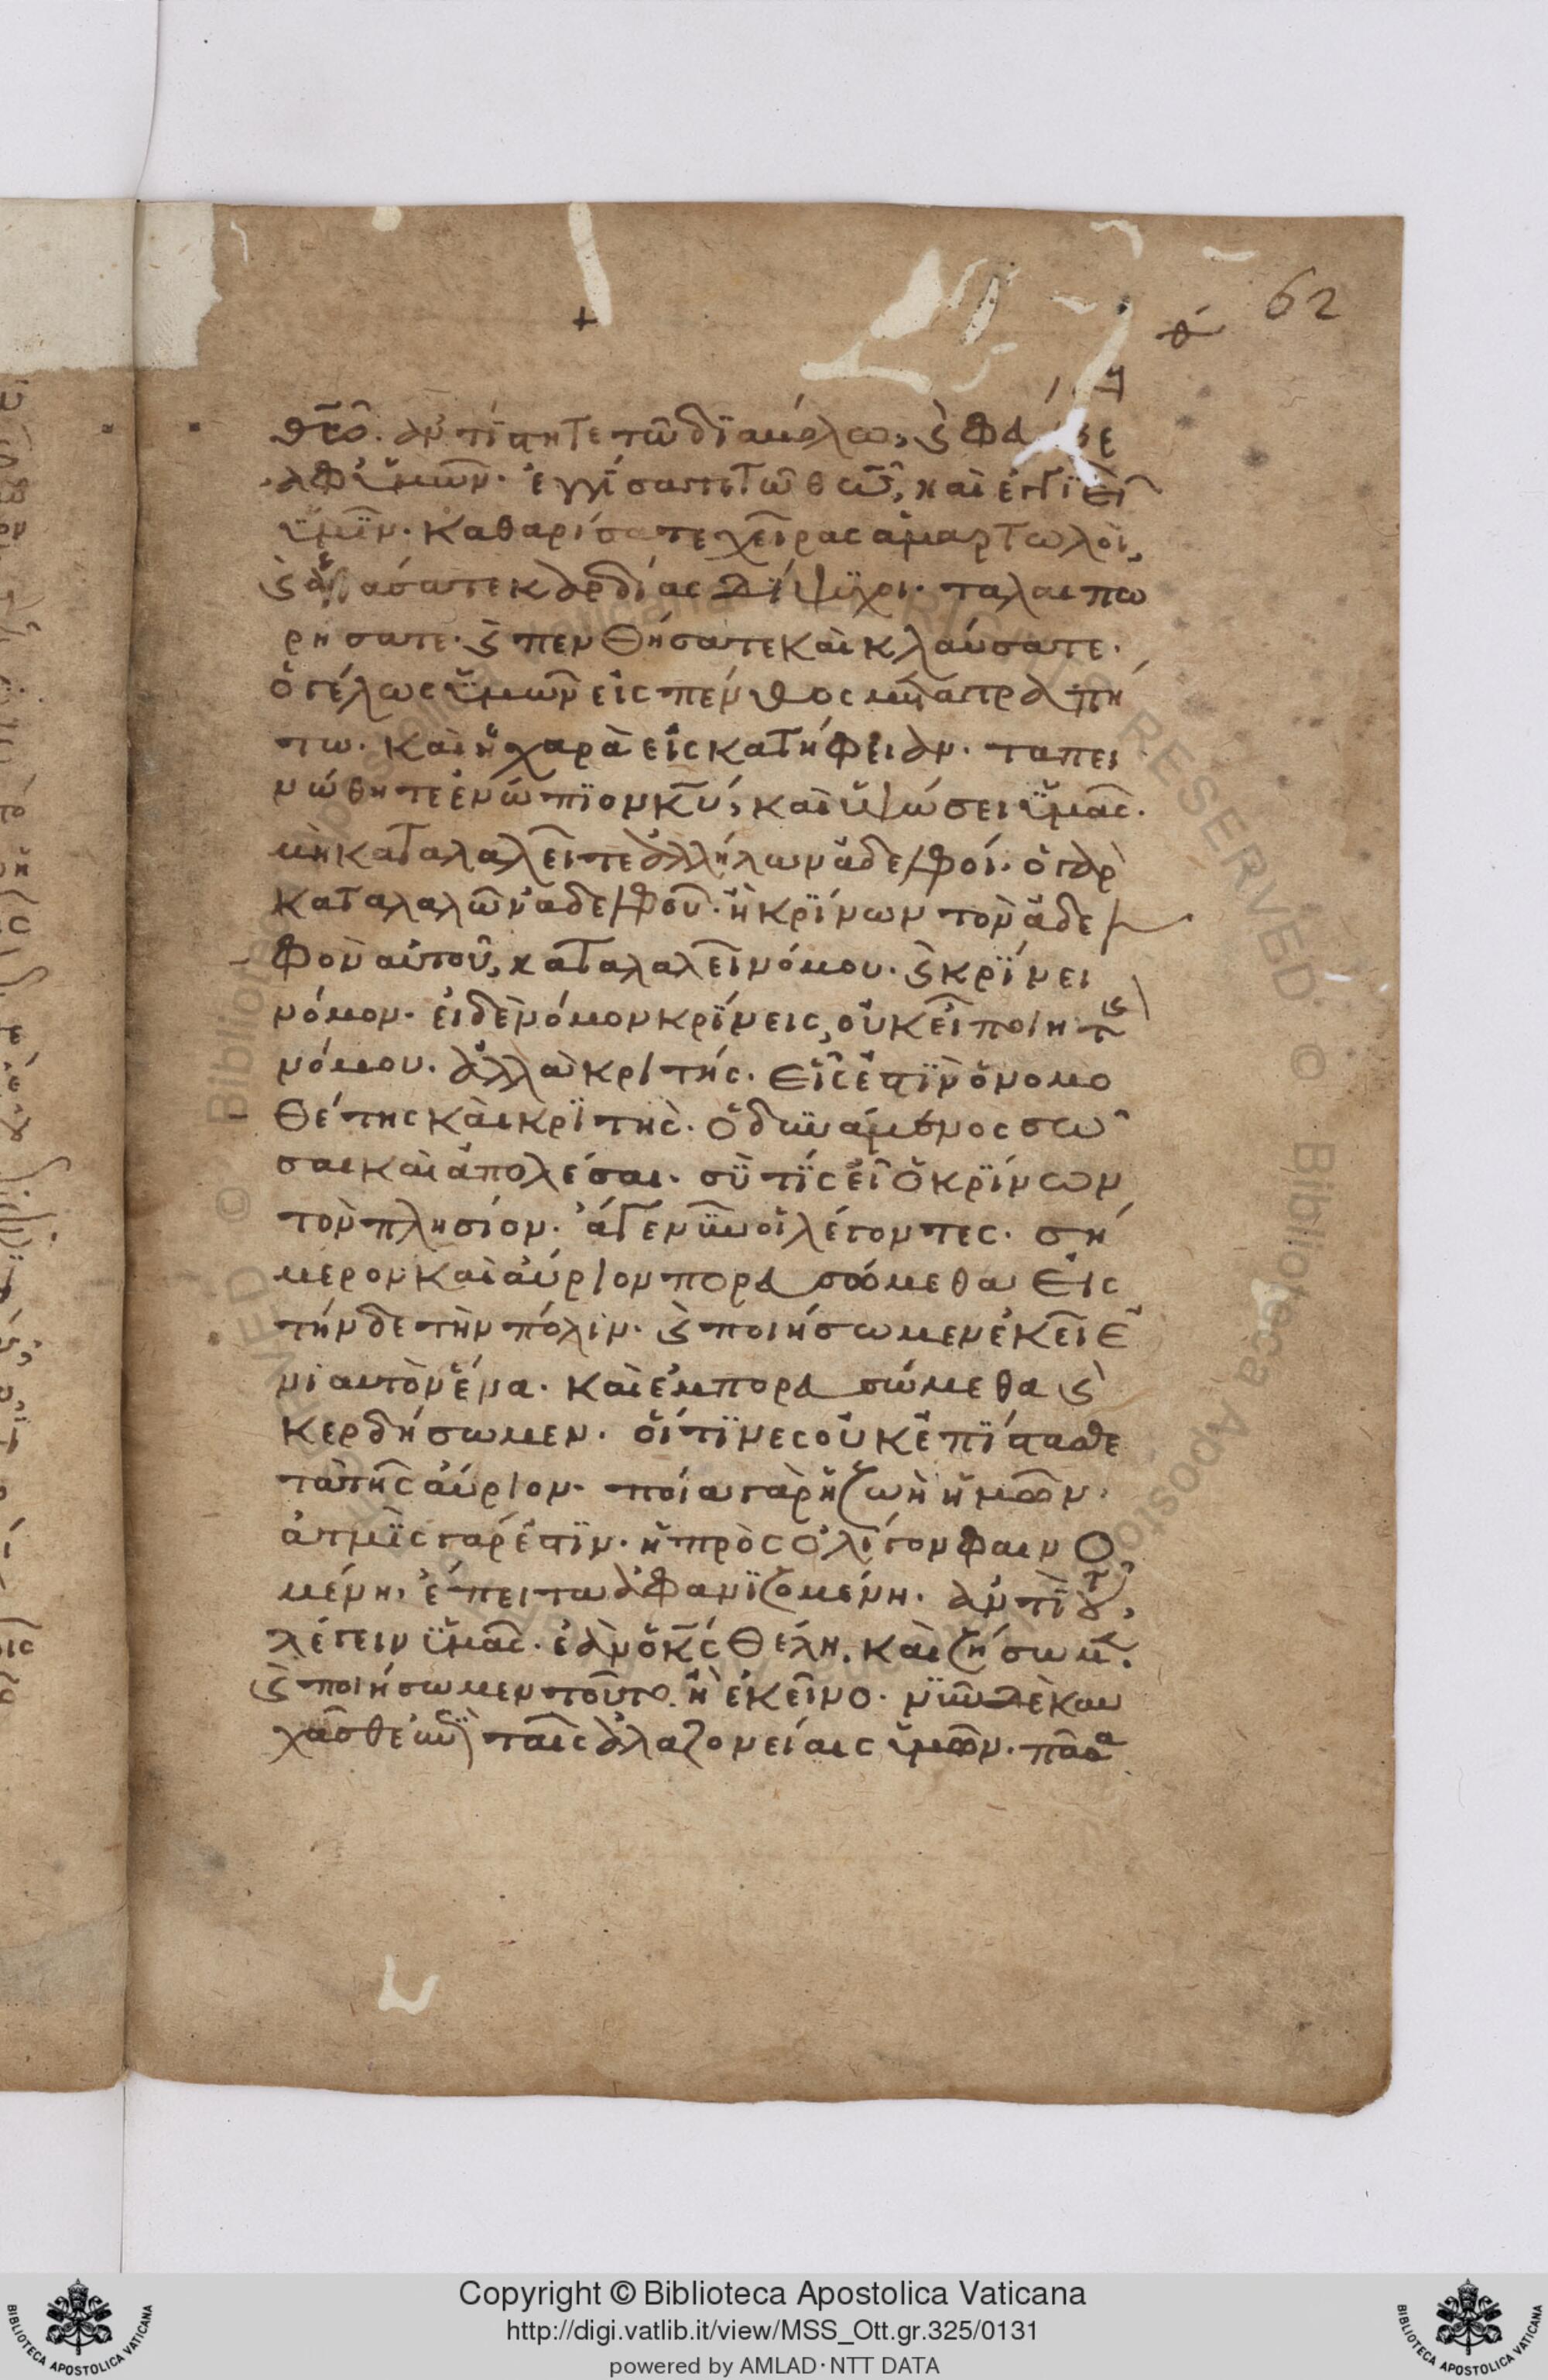 62
θεῶ. ἀντίστητε τῶ διαβόλω, ϛ φεύ
ἀφ ὑμῶν. ἐγγίσατε τῶ θῶ, καὶ ἐγγιεῖ
ὑμῖν. καθαρίσατε χεῖρας ἁμαρτωλοὶ,
ϛ ἁγνίσατε καρδίας δίψυχοι. ταλαιπω
ρήσατε. ϛ πενθήσατε καὶ κλαύσατε.
ὁ γέλως ὑμῶν εἰς πένθος μετατραπή
τω. καὶ ἡ χαρὰ εἰς κατήφειαν. ταπει
νώθητε ἐνώπϊον κῦ, καὶ ὑψώσει ὑμᾶς.
μὴ καταλαλεῖτε ἀλλήλων ἀδελφοί. ὁ γὰρ
καταλαλῶν ἀδελφοῦ. ἢ κρίνων τὸν ἀδελ
φὸν αὐτοῦ, καταλαλεῖ νόμου. ϛ κρϊνει
νόμον. εἰ δὲ νόμον κρϊνεις, οὐκ εἶ ποιητὴς
νόμου. ἀλλὰ κριτής. εἷς ἐστϊν ὁ νομο
θέτης καὶ κρϊτὴς. ὁ δυνάμενος σῶ
σαι καὶ ἀπολέσαι. σὺ τίς εἶ ὁ κρϊνων
τὸν πλησίον. ἄγε νῦν οἱ λέγοντες. σή
μερον καὶ αὔριον πορευσόμεθα εἰς
τήνδε τὴν πόλιν. ϛ ποιήσωμεν ἐκεῖ ἐ
νιαυτὸν ἕνα. καὶ ἐμπορευσώμεθα ϛ
κερδήσωμεν. οἵτϊνες οὐκ ἐπϊστασθε
τὰ τῆς αὔριον. ποία γὰρ ἡ ζωὴ ἡμῶν.
ἀτμὶς γάρ ἐστϊν. ἡ πρὸς ὀλίγον φαινο
μένη, ἔπειτα ἀφανϊζομένη. ἀντὶ τοῦ
λέγειν ὑμᾶς. ἐὰν ὁ κς θέλη, καὶ ζήσωμεν.
ϛ ποιήσωμεν τοῦτο ἢ ἐκεῖνο. νῦν δὲ καυ
χᾶσθε ἐν ταῖς ἀλαζονείαις ὑμῶν. πᾶσα
Copyright © Biblioteca Apostolica Vaticana
http://digi.vatlib.it/view/MSS_Ott.gr.325/0131
powered by AMLAD·NTT DATA